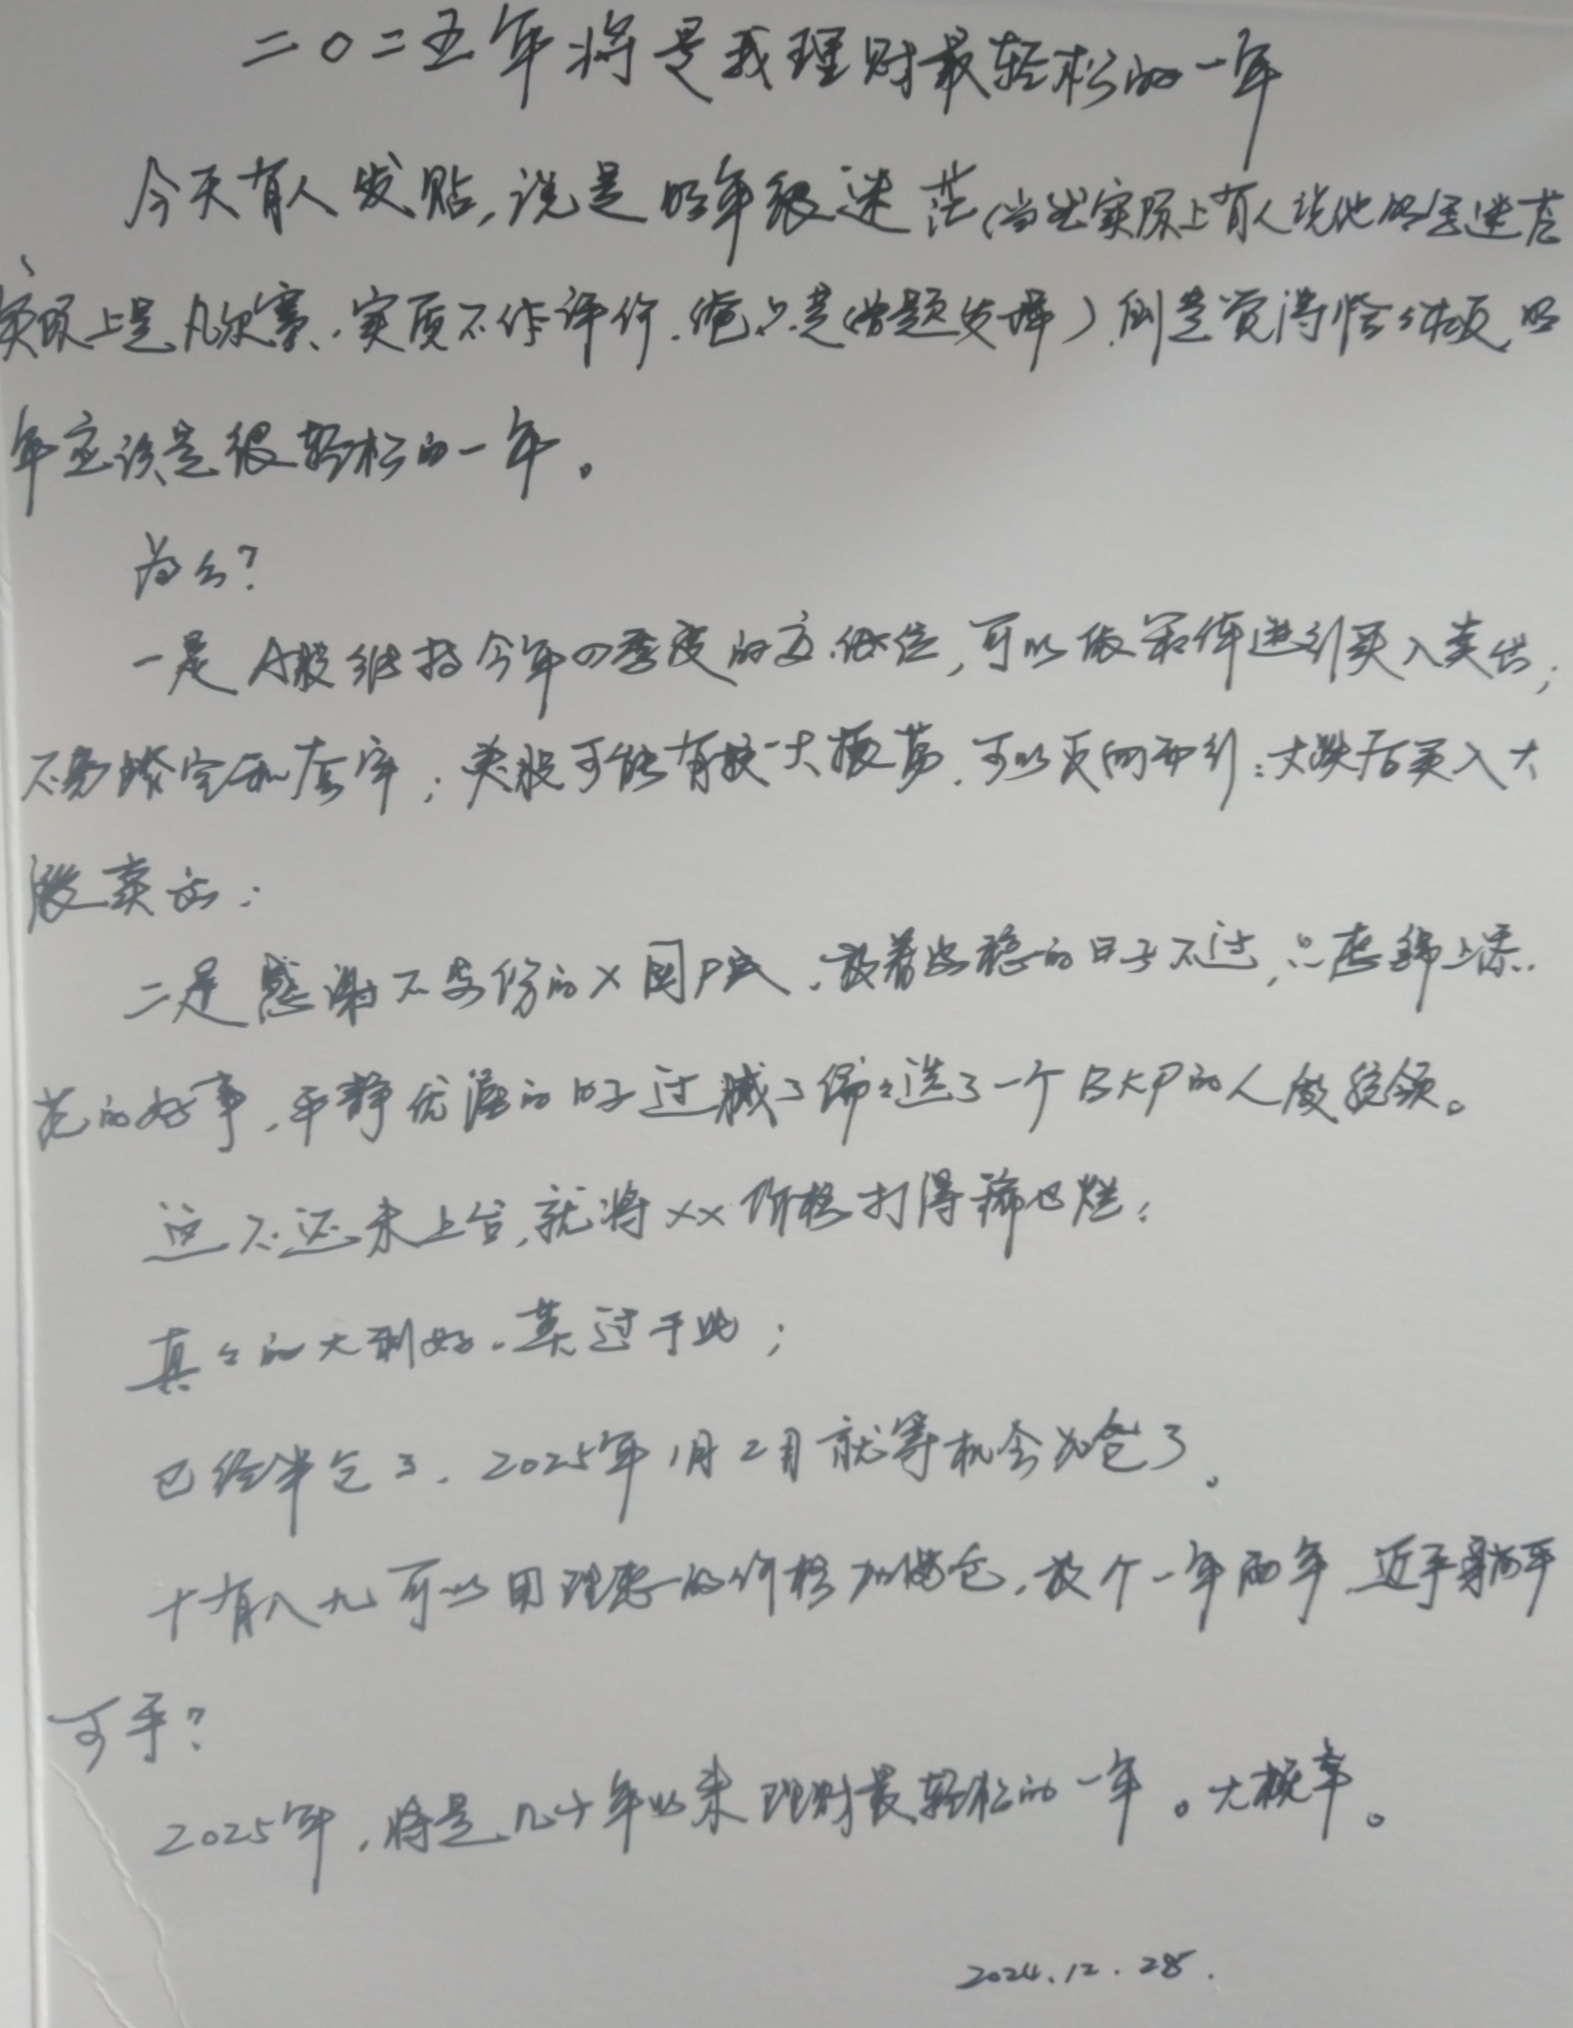 二〇二五年将是我理财最轻松的一年
今天有人发贴,说是明年很迷茫(当然实际上有人说他的迷茫
实际上是凡尔赛.实质不作评价.俺只是借题发挥)倒是觉得恰恰相反,明
年应该是很轻松的一年。
为么?
一是A股维持今年四季度的高.低位,可以做条件进行买入卖出;
不易踏空和套牢;美股可能有较大振荡.可以反向而行:大跌后买入大
涨卖出;
二是感谢不安份的X国P民,放着安稳的日子不过,只想锦上添
花的好事,平静优渥的日子过腻了偏偏选了一个BKP的人做总领。
这不还未上台,就将XX价格打得稀巴烂;
真真的大利好.莫过于此;
已经半仓了.2025年1月2月就等机会加仓了。
十有八九可以用理想的价格加满仓,放个一年两年.近乎躺平
可乎?
2025年,将是几十年以来理财最轻松的一年。大概率。
2024.12.28.